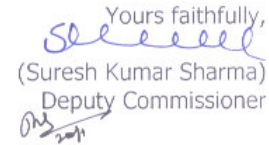 Yours faithfully,
(Suresh Kumar Sharma)
Deputy Commissioner